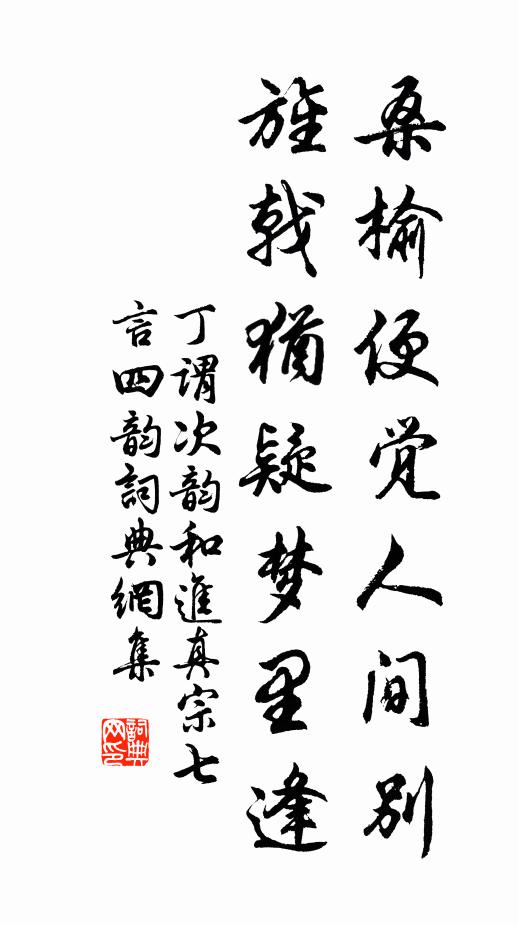 桑榆便觉人间别
旌戟犹疑梦里逢
丁谓次韵和進真宗七
言四韵詞典網集
詞典
网印